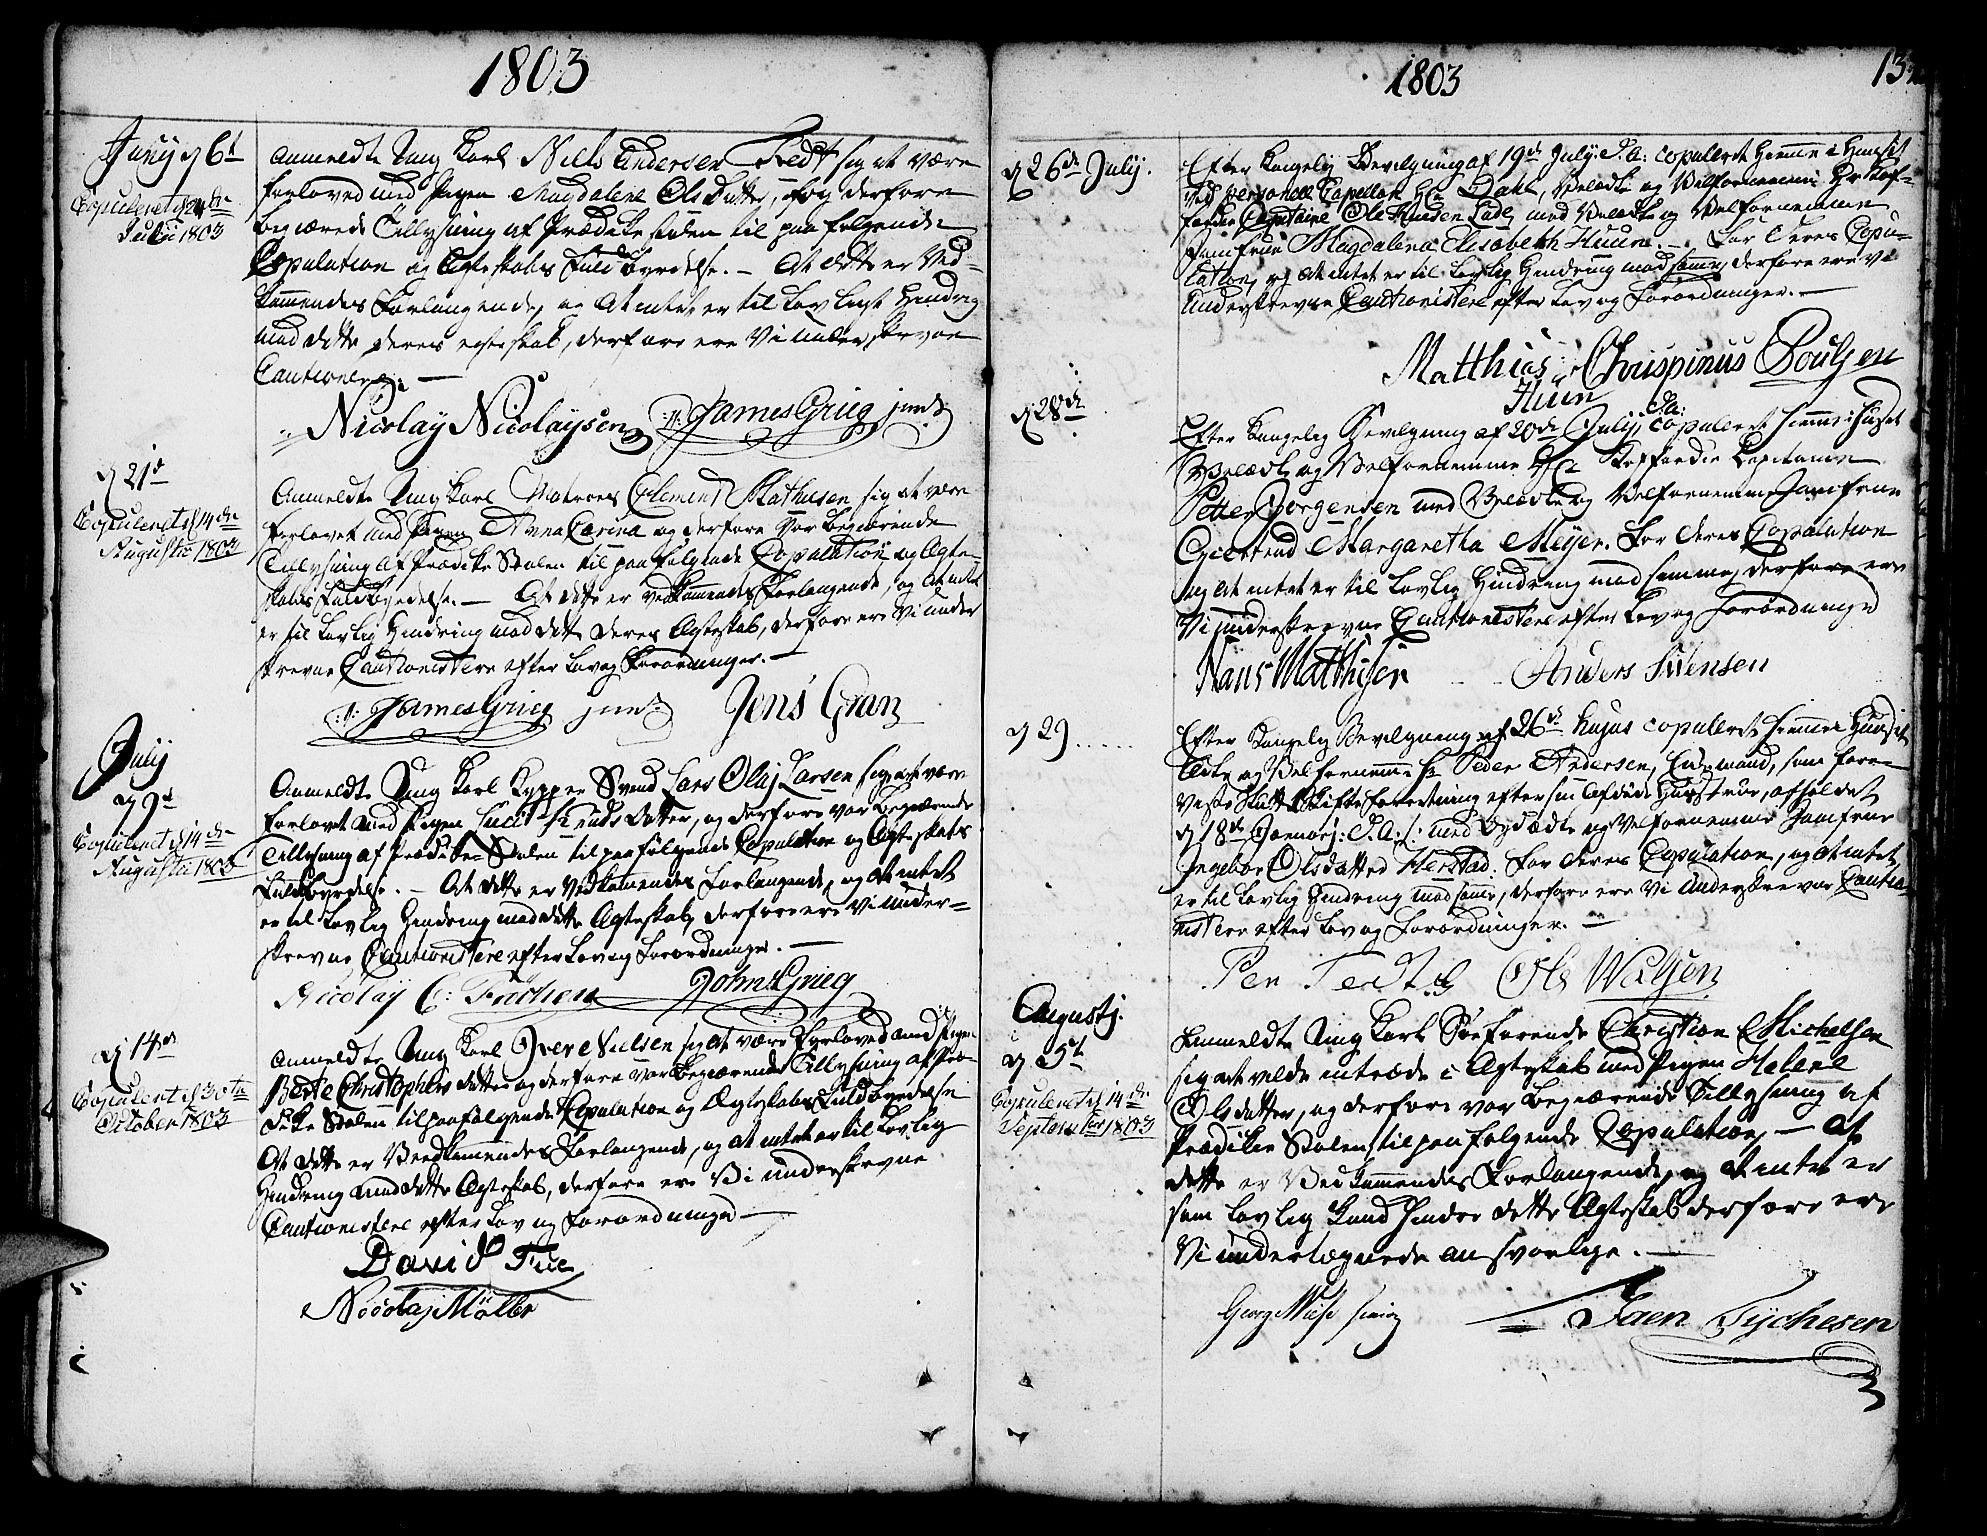 1803
Junij d 6t
Copuleret d 24de
Julii 1803
Anmeldte Ung Karl Niels Andersen Fedt sig at være
forloved med Pigen Magdalene Ols Datter, og derfore
begiærede Tillysning af Prædikestolen til paafølgende
Copulation og Egteskabs Fuldbyrdelse. – At dette er Ved-
kommendes Forlangende, og At intet er til Lovligt Hindring
mod dette deres egteskab, derfore ere Vi underskrevne
Cautionere. –
Nicolay Nicolaysen James Grieg junr
d 21d
Copuleret d 14de
Augustii 1803
Anmeldte Ung Karl Matroes Clement Mathisen sig at være
forlovet med Pigen Anna Carina og derfore var begiærende
Tillysning af Prædike Stolen til paafølgende Copulation og Egte-
skabs Fuldbyrdelse. – At dette er vedkommendes Forlangende, og At intet
er til Lovlig Hindring mod dette deres Egteskab, derfore ere Vi under
skrevne Cautionistere efter Lov og Forordninger. –
James Grieg junr Jens Gran
Julij
d 9d
Copuleret d 14de
Augustii 1803
Anmeldte Ung Karl Kypper Svend Lars Olaj Larsen sig at være
forlovet med Pigen Knuds Datter, og derfore var begiærende
Tillysning af Prædike Stolen til paafølgende Copulation og Egteskabs
Fuldbyrdelse. – At dette er Vedkommendes Forlangende, og At intet
er til Lovlig Hindring mod dette Egteskab, derfore ere Vi under-
skrevne Cautionistere efter Lov og Forordninger. –
Nicolay C: Frichen John Grieg
d 14de
Copuleret d 30te
October 1803
Anmeldte Ung Karl Iver Nielsen sig at være Forloved med Pigen
Berte Christophers datter og derfore var begiærende Tillysning af Præ-
dike Stolen til paafølgende Copulation og Egteskabs Fuldbyrdelse
At dette er Vedkommendes Forlangende, og at intet er til Lovlig
Hindring mod dette Egteskab, derfore ere Vi underskrevne
Cautionistere efter Lov og Forordninger –
David Fiie
Nicolaj Møller
1803
d 26de Julij.
Efter Kongelig Bevilgning af 19de Julij d. a: copuleret hiemme i Huuset
Ved personel Capellan Hr Dahl, Velædle og Velfornemme Hr Kof-
fardie Capitaine Ole Lude med Velædle og Velfornemme
Jomfrue Magdalena Elisabeth Huun. – For deres Copu-
lation, og At intet er til Lovlig Hindring mod samme, derfore ere Vi
Underskrevne Cautionistere efter Lov og Forordninger. –
Matthias Chrispinus Poulsen
Huun
d 28de
Efter Kongelig Bevilgning af 20de Julij d. a: copuleret hiemme i Huset
Velædle og Velfornemme Hr Koffardie Capitaine
Petter Jorgensen med Velædle og Velfornemme Jomfrue
Giertrud Margaretha Meyer. For deres Copulation
og At intet er til Lovlig Hindring mod samme, derfore ere
Vi underskrevne Cautionistere efter Lov og Forordninger
Hans Matthisen Anders Svensen
d 29 .....
Efter Kongelig Bevilgning af 26de hujus copuleret hiemme i Huuset
Ædle og Velfornemme Hr Peder Andersen, Enkemand, som fore-
viste Skifte Forretning efter sin Afdøde Hustrue, afholdet
d 18de Janoarj: d. a: /: med Dydædle og Velfornemme Jomfrue
Ingebor Olsdatter Herstad: For deres Copulation, og At intet
er til Lovlig Hindring mod samme, derfore ere Vi Underskrevne Cautio-
nistere efter Lov og Forordninger. –
Ole Walsen
Augustj.
d 25t
Copuleret d 14de
September 1803
Anmeldte Ung Karl Søefarende Christian Michelsen
sig at vilde intræde i Egteskab med Pigen Helene
Olsdatter, og derfore var begiærende Tillysning af
Prædike Stolen til paafølgende Copulation, – At
dette er Vedkommendes Forlangende, og At intet er
som Lovlig kand hindre dette Egteskab derfore ere
Vi undertegnede ansvarlige. –
Georg Wiese senior Jaen Tychesen